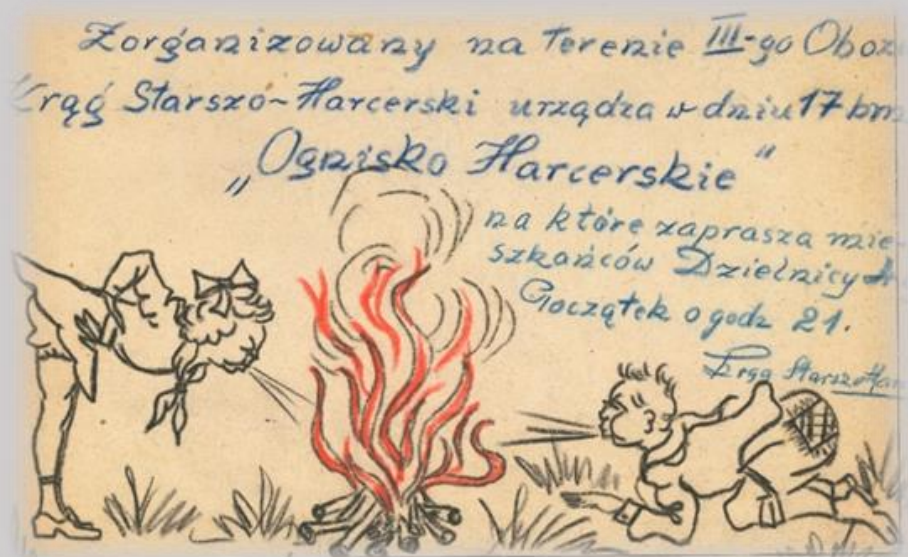 Zorganizowany na terenie III-go Oboz
Krąg Starszo-Harcerski urządza w dniu 17 bm
„Ognisko Harcerskie"
na które zaprasza mie-
szkańców Dzielnicy
Początek o godz 21.
Krąg StarszoHar